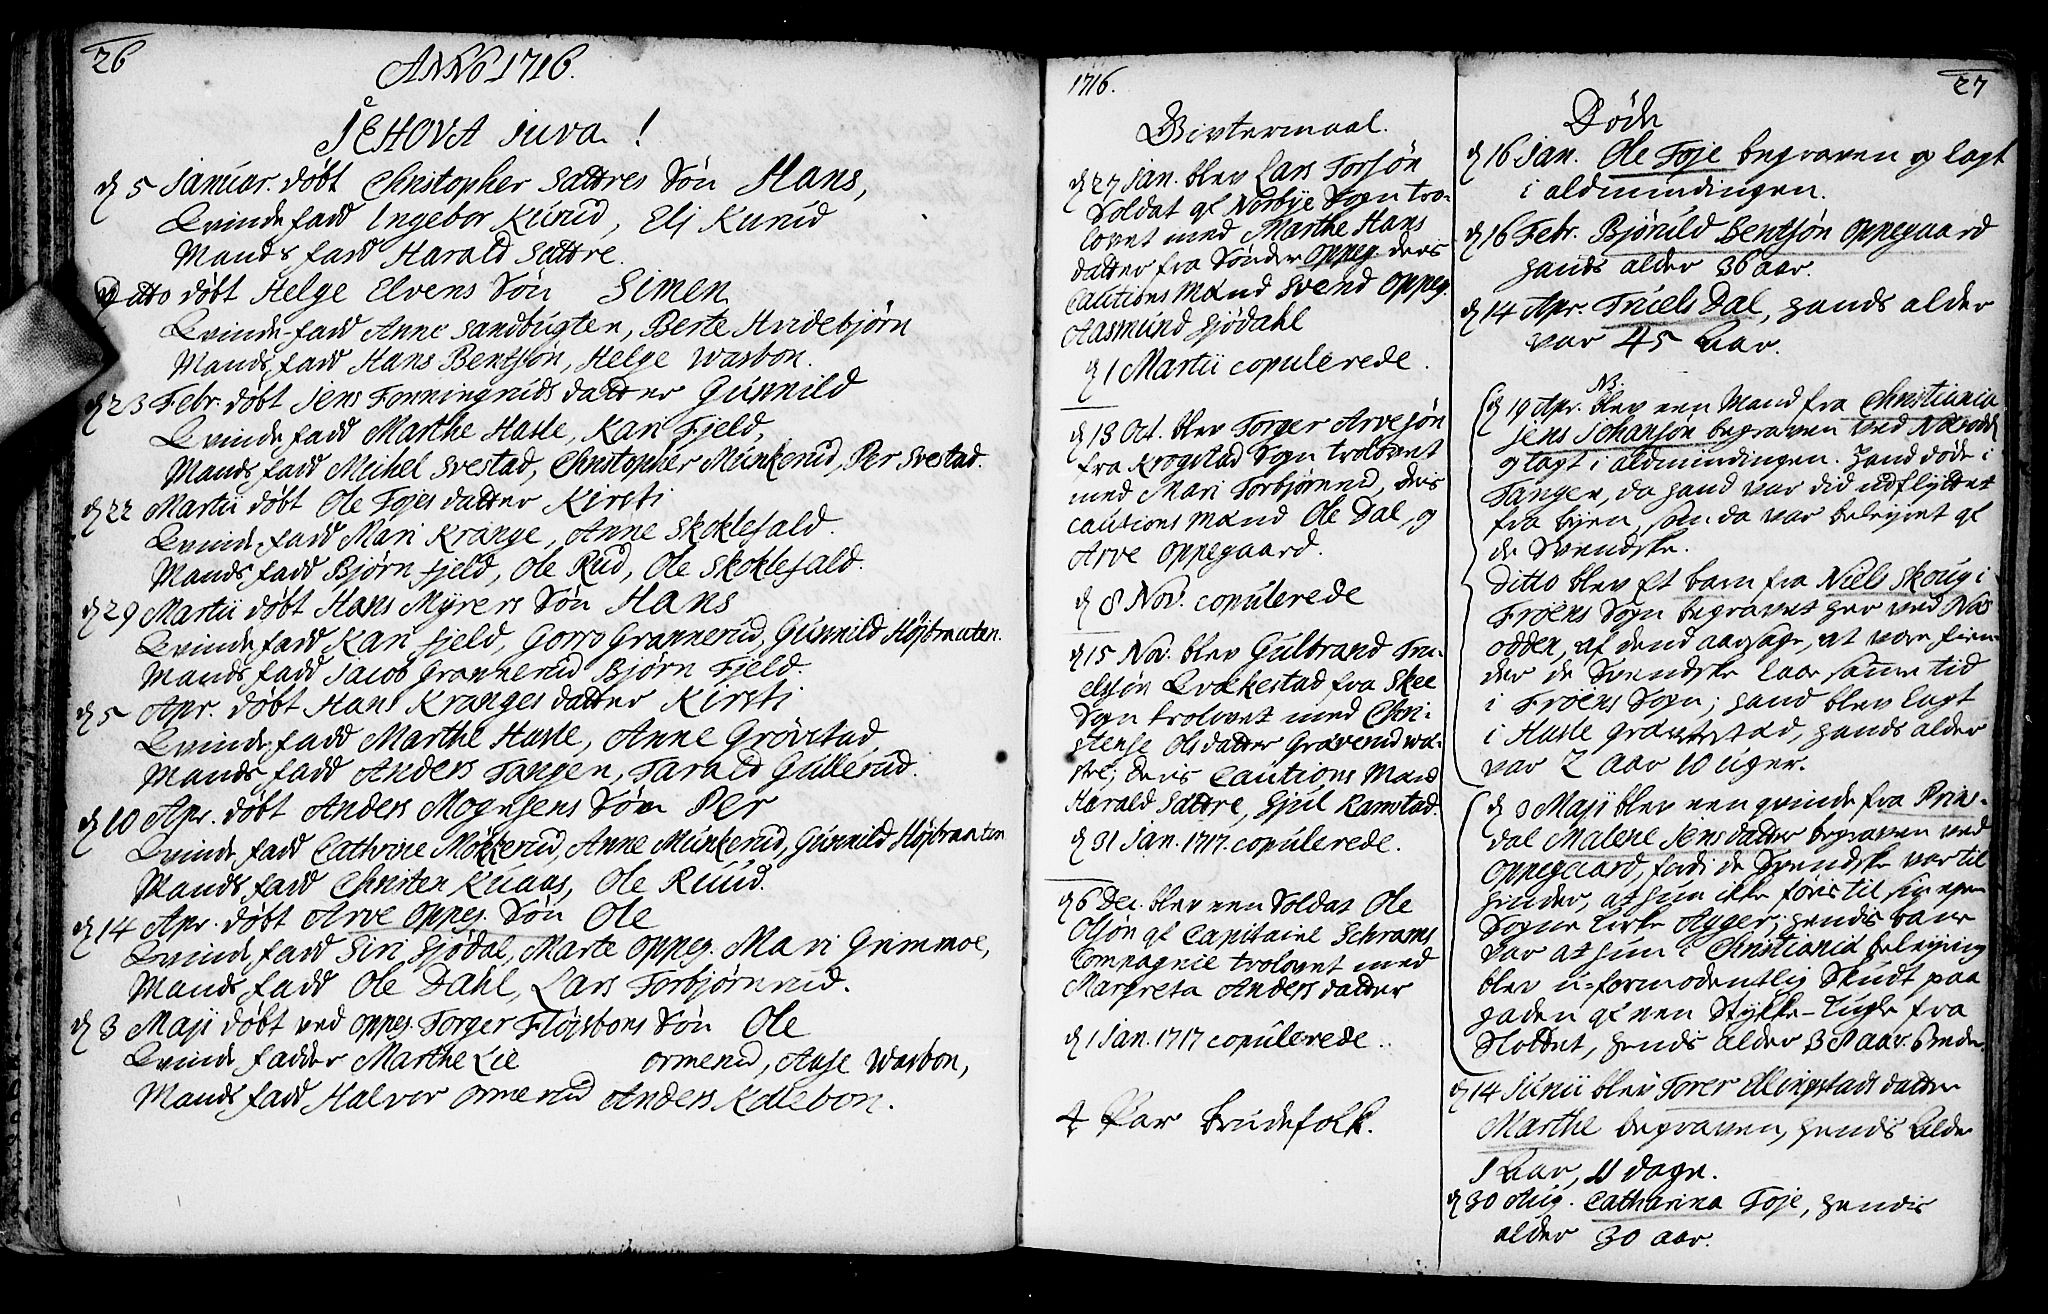 26
ANNO 1716.
JEHOVA juva!
d 5 Januar. døbt Christopher Sættres Søn Hans,
Qvinde fadd Ingebor Kurud, Eli Kurud
Mands fadd Harald Sættre.
dito døbt Helge Elvens Søn Simen
Qvinde-fadd Anne Sandbugten, Berte Hvidebjørn
Mands fadd Hans Bentsøn, Helge Wasbon.
d 23 Febr. døbt Jens Fonningruds datter Gunnild
Qvinde fadd Marthe Hasle, Kari Fjeld,
Mands fadd Michel Svestad, Christopher Munkerud, Per Svestad.
d 22 Martii døbt Ole Fojes datter Kirsti
Qvinde fadd Mari Krange, Anne Skoklefald.
Mands fadd Bjørn fjeld, Ole Rud, Ole Skoklefald.
d 29 Martii døbt Hans Myrers Søn Hans
Qvinde fadd Kari fjeld, Gorro Grannerud, Gunnild Højbraaten.
Mands fadd Jacob Grannerud Bjørn Fjeld.
d 5 Apr. døbt Hans Kranges datter Kirsti
Qvinde fadd Marthe Hasle, Anne Grøvstad
Mands fadd Anders Tangen, Tarald Gullerud.
d 10 Apr. døbt Anders Mognsens Søn Per
Qvinde fadd Cathrine Møkkerud, Anne Munkerud, Gunnild Højbraaten
Mands fadd Christen Knaas, Ole Ruud.
d 14 Apr. døbt Arve Oppeg. Søn Ole
Qvinde fadd Siri Gjødal, Marte Oppeg. Mari Grimmoe,
Mands fadd Ole Dahl, Lars Torbjørnrud.
d 3 Maji døbt ved Oppeg. Torger Fløjsbons Søn Ole
Qvinde fadder Marthe Lie Ormerud, Aase Wasbon,
Mands fadd Halvor Ormerud Anders Kollebon.
1716.
Givtermaal.
d 27 Jan. blev Lars Torsøn
Soldat af Norbye Sogn tro-
lovet med Marthe Hans
datter fra Sønder Oppeg. deris
Cautions Mænd Svend Oppeg.
Aasmund Gjødahl
d 1 Martii copulerede.
d 18 Oct. blev Torger Arvesøn
fra Krogstad Sogn trolovet
med Mari Torbjørnrud, deris
cautions Mænd Ole Dal, og
Arve Oppegaard.
d 8 Nov. copulerede
d 15 Nov. blev Gulbrand Tru-
elssøn Qvækestad fra Skee
Sogn trolovet med Chri-
stense Olsdatter Graverud we-
stre; deris Cautions Mænd
Harald Sættre, Gjul Ramstad.
d 31 Jan. 1717. copulerede.
d 6 Dec. blev een Soldat Ole
Olsøn af Capitaine Schrams
Compagnie trolovet med
Margreta Anders datter
d 1 Jan. 1717 copulerede.
4 Par Brudefolk.
27
Døde
d 16 Jan. Ole Foje begraven og lagt
i aldmindingen.
d 16 Febr. Bjøruld Bentsøn Oppegaard
hands alder 36 aar.
d 14 Apr. Truels Dal, hands alder
var 45 Aar.
NB.
d 19 Apr. blev een Mand fra Christiania
Jens Johansøn begraven ved Næsodd
og lagt i aldmindingen. hand døde i
Tangen, da hand var did udflyttet
fra byen, som da var belejret af
de Svendske.
Ditto blev Et barn fra Niels Skoug i
Froens Sogn begravet her ved Næs-
odden, af dend aarsage, at vore fien-
der de Svendske laae samme tid
i Froens Sogn; hand blev lagt
i Hasle gravsted, hands alder
var 2 aar 10 uger.
d 3 Maji blev een qvinde fra Prins-
dal Malene Jens datter begraven ved
Oppegaard, fordi de Svendske var til
hinder, at hun ikke føris til sin egen
Sogne kirke Agger; hendis bane
var at hun i Christiania belejring
blev u-formodentlig Skudt paa
gaden af een Stykke-kugle fra
Slottet, hends alder 38 aar.
d 14 Junii blev Torer Ellingstads datter
Marthe begraven, hends Alder
1 Aar, 11 dage.
d 30 Aug. Catharina Foje, hendis
alder 30 aar.